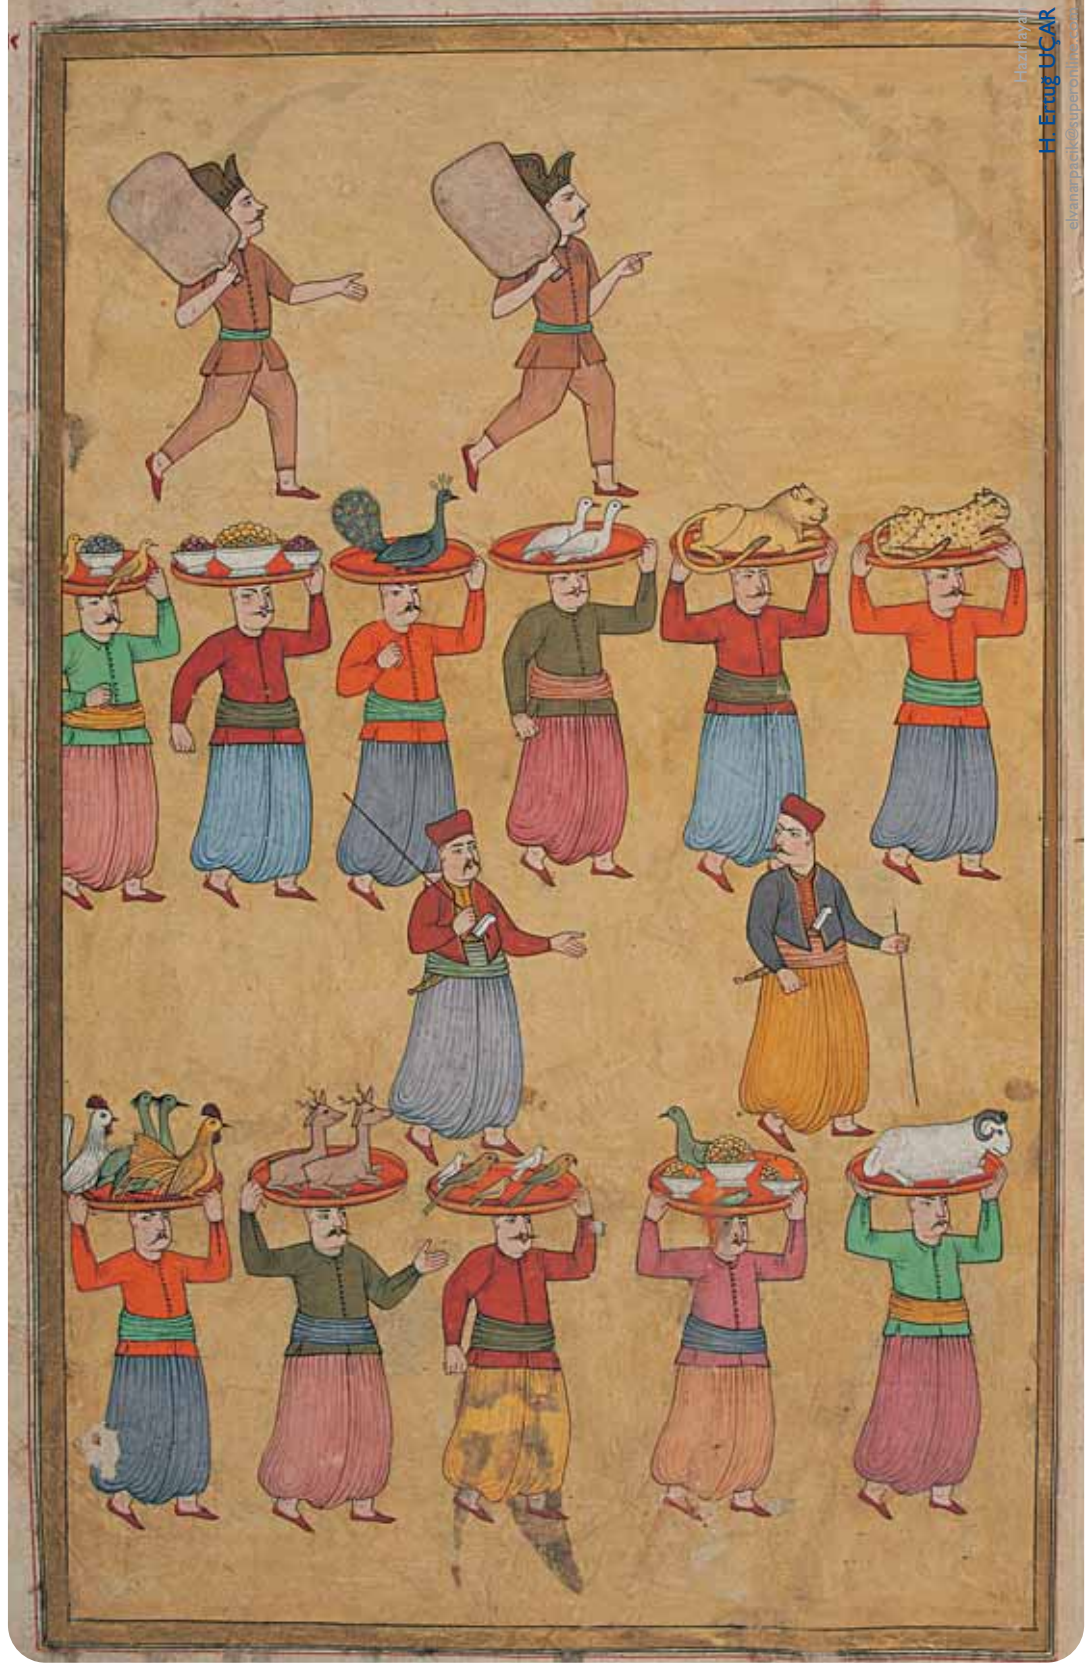 Hazırlayan
H. Ertuğ UÇAR
elvanarpacik@superonline.com